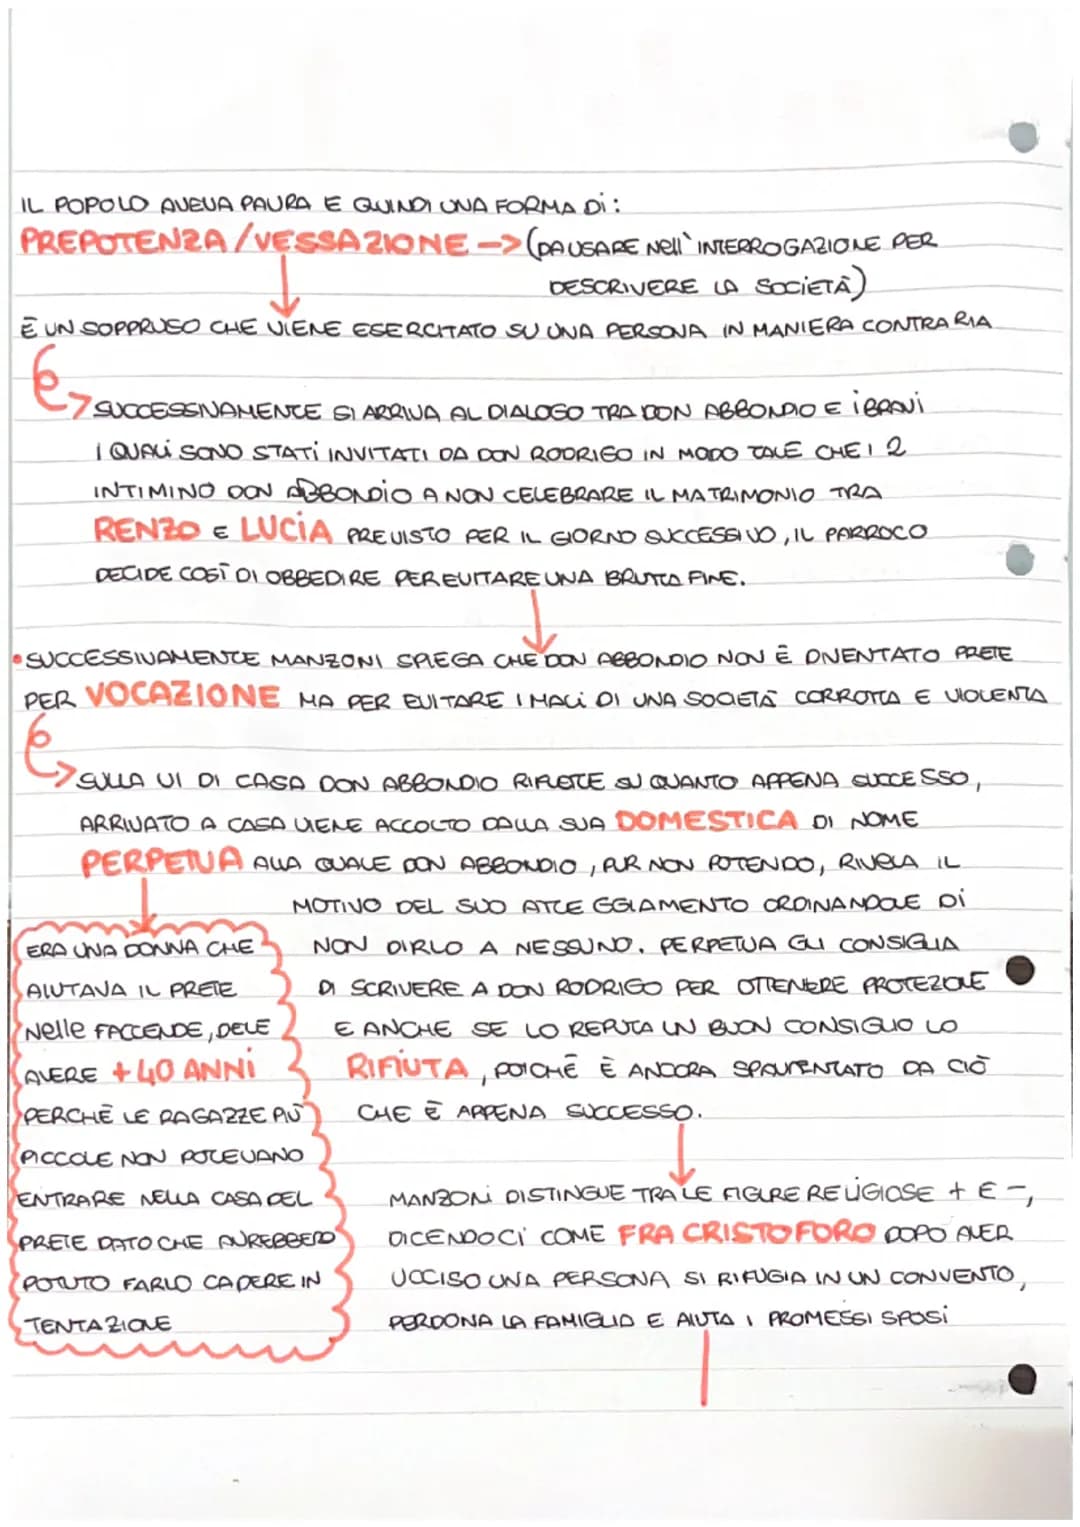 IL POPOLO AVEVA PAURA E QUINDI UNA FORMA Di:
PREPOTENZA/VESSAZIONE -> (DA USARE Nell' INTERROGAZIONE PER
DESCRIVERE LA SOCIETÀ)
È UN SOPPRUSO CHE VIENE ESERCITATO SU UNA PERSONA IN MANIERA CONTRARIA
SUCCESSIVAMENTE SI ARRIVA AL DIALOGO TRA DON ABBONDIO E i BRAVI
I QUALI SONO STATI INVITATI DA DON RODRIGO IN MODO TALE CHE I 2
INTIMINO DON ABBONDIO A NON CELEBRARE IL MATRIMONIO TRA
RENZO E LUCIA PREVISTO PER IL GIORNO SUCCESSIVO, IL PARROCO
DECIDE COSÌ DI OBBEDIRE PER EVITARE UNA BRUTTA FINE.
• SUCCESSIVAMENTE MANZONI SPIEGA CHE DON ABBONDIO NON È DIVENTATO PRETE
PER VOCAZIONE MA PER EVITARE I MALI DI UNA SOCIETÀ CORROTTA E VIOLENTA
SULLA VI DI CASA DON ABBONDIO RIFLETTE SU QUANTO APPENA SUCCESSO,
ARRIVATO A CASA VIENE ACCOLTO DALLA SUA DOMESTICA DI NOME
PERPETUA ALLA QUALE DON ABBONDIO, PUR NON POTENDO, RIVELA IL
MOTIVO DEL SUO ATTEGGIAMENTO ORDINANDOLE Di
NON DIRLO A NESSUNO. PERPETUA GLI CONSIGLIA
DI SCRIVERE A DON RODRIGO PER OTTENERE PROTEZIONE
E ANCHE SE LO REPUTA UN BUON CONSIGLIO LO
RIFIUTA, POICHÈ È ANCORA SPAVENTATO DA CIÒ
CHE È APPENA SUCCESSO.
ERA UNA DONNA CHE
AIUTAVA IL PRETE
Nelle FACCENDE, DEVE
AVERE + 40 ANNI
PERCHÈ LE RAGAZZE PIÙ
PICCOLE NON POTEVANO
ENTRARE NELLA CASA DEL
PRETE DATO CHE AVREBBERO
POTUTO FARLO CADERE IN
TENTAZIONE
MANZONI DISTINGUE TRA LE FIGURE RELIGIOSE + E -,
DICENDOCI COME FRA CRISTOFORO DOPO AVER
UCCISO UNA PERSONA SI RIFUGIA IN UN CONVENTO,
PERDONA LA FAMIGLIA E AIUTA I PROMESSI SPOSI